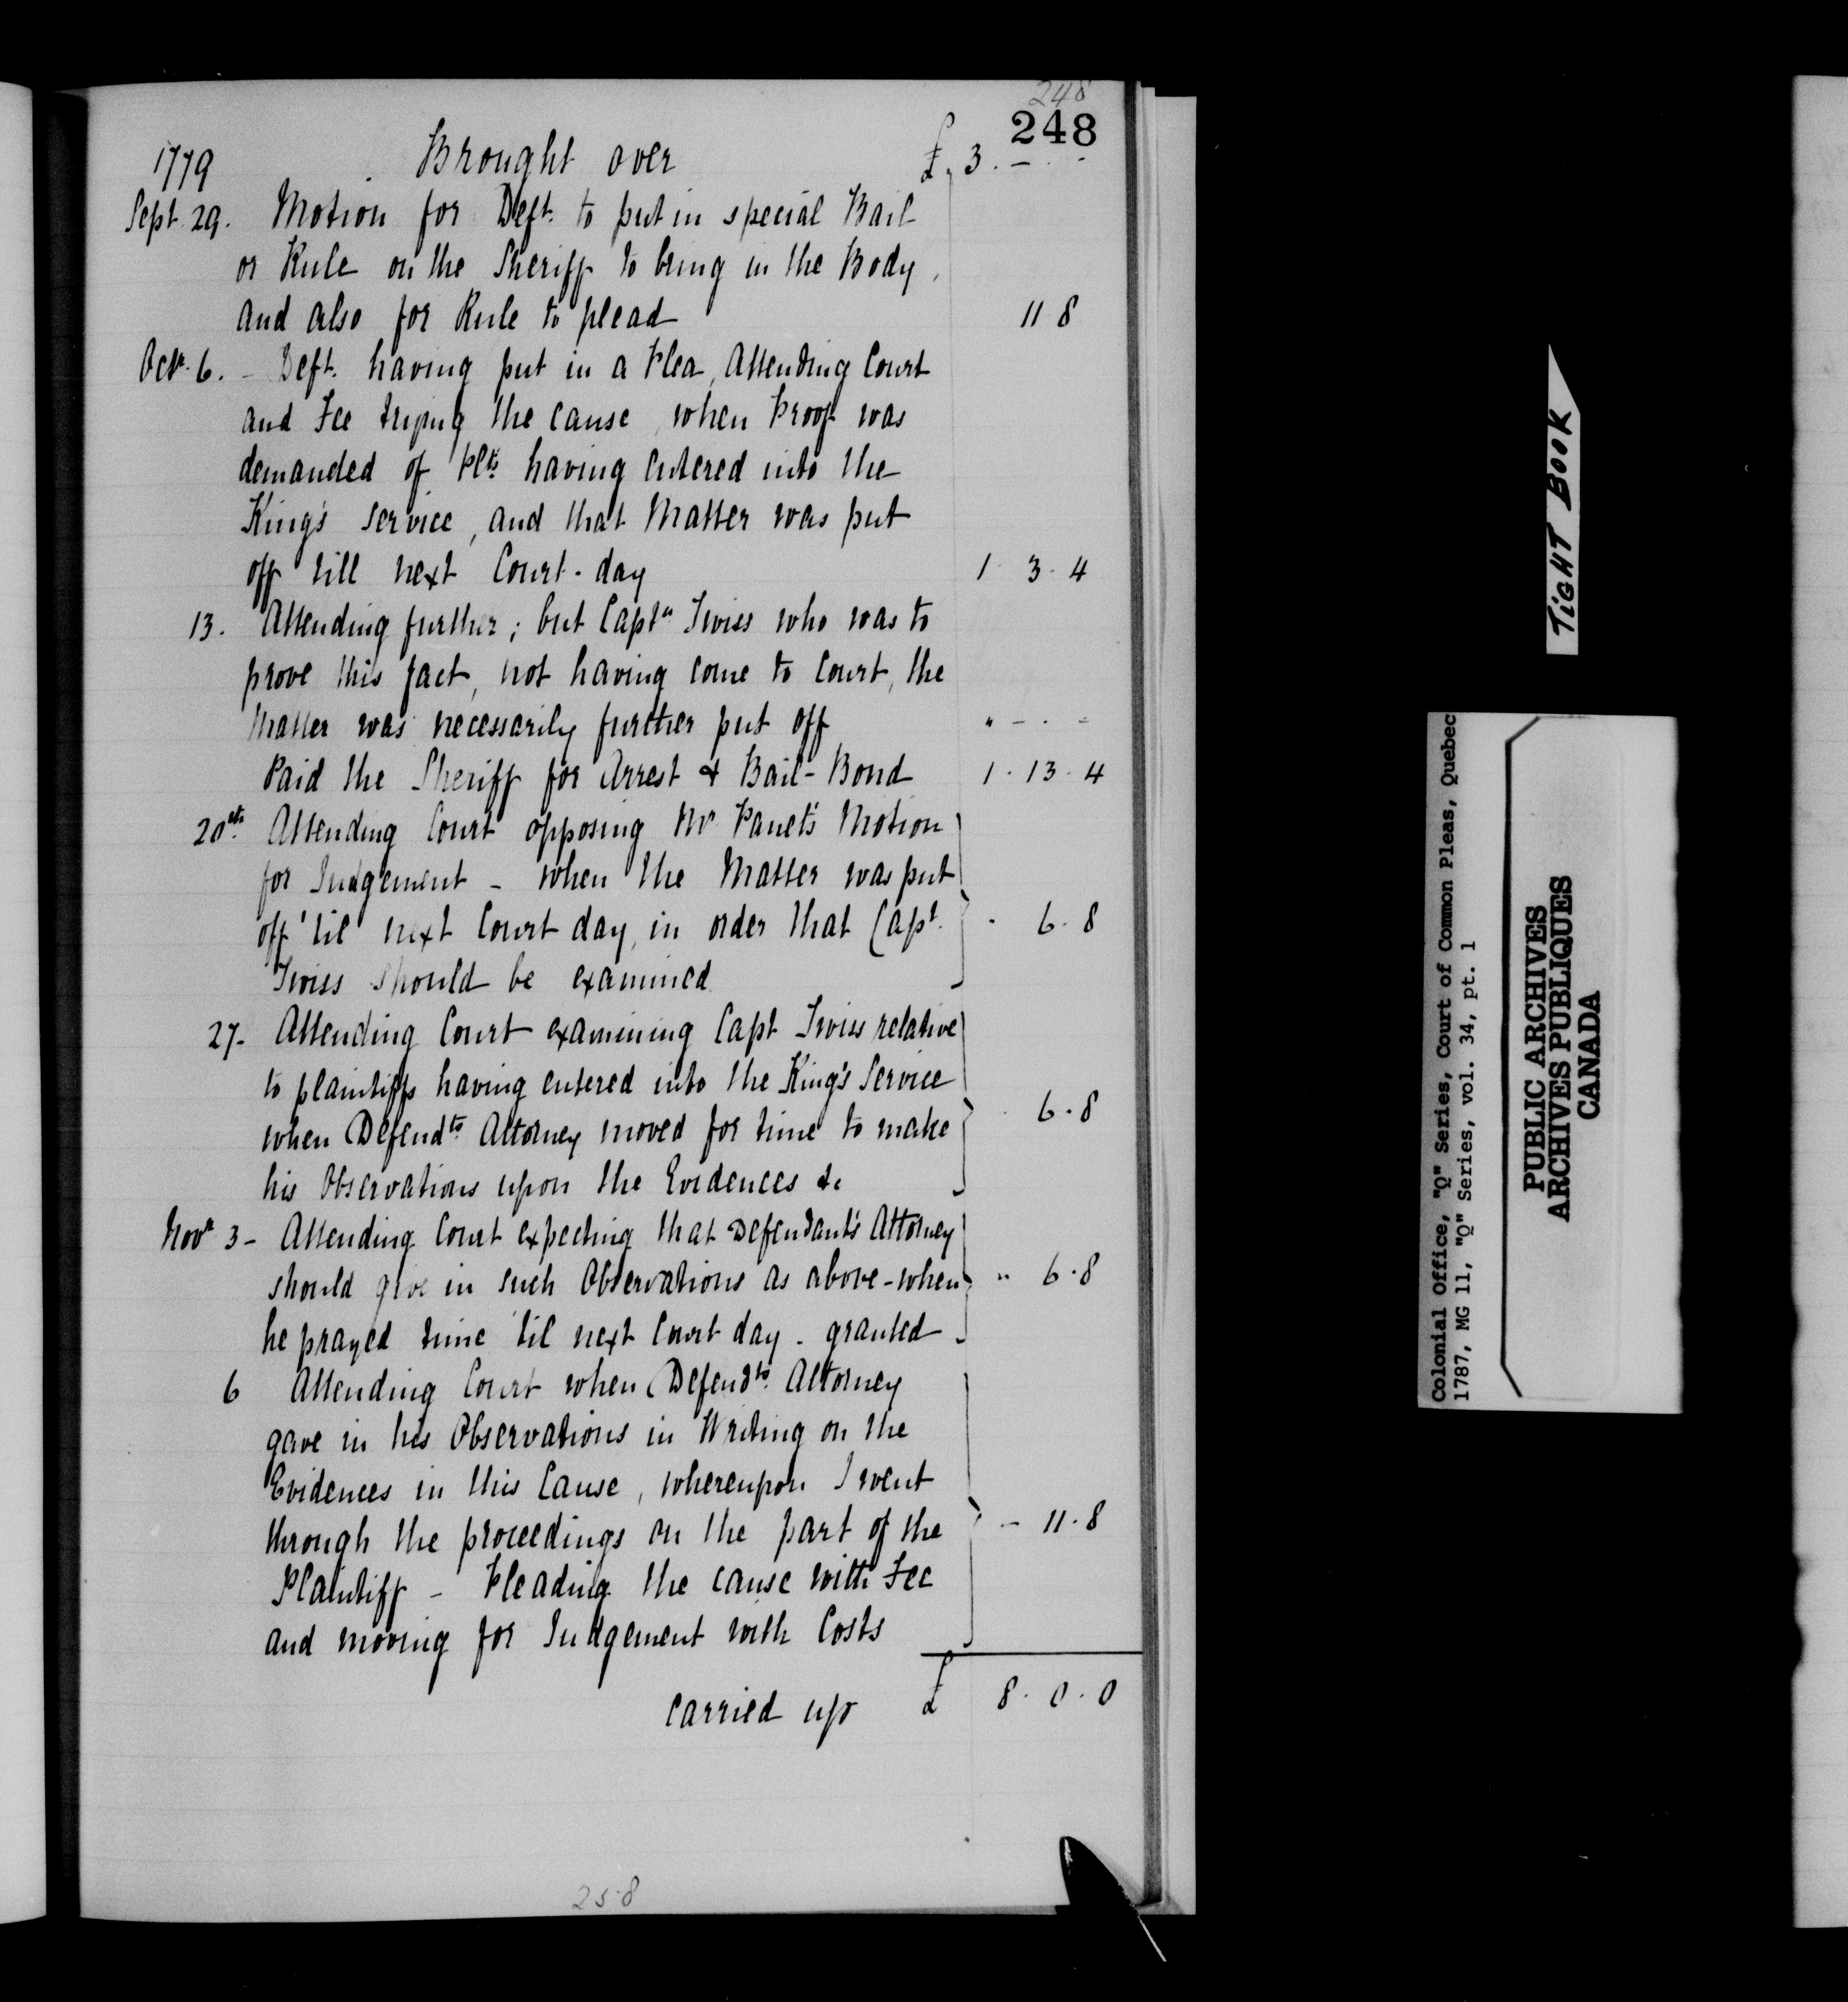 248
248
1779 Brought over £ 3. - . -
Sept. 29. Motion for Deft. to put in special Bail
or Rule on the Sheriff to bring in the Body,
and also for Rule to plead 11 8
Octr. 6. - Deft. having put in a Plea, Attending Court
and Fee trying the cause, when Proof was
demanded of Plts. having entered into the
King's Service, and that Matter was put
off till next Court-day 1. 3. 4
13. Attending further; but Captn Twiss who was to
prove this fact, not having come to Court, the
Matter was necessarily further put off " - . -
Paid the Sheriff for Arrest & Bail-Bond 1. 13. 4
20th. Attending Court opposing Mr Panet's Motion
for Judgement - when the Matter was put
off 'til next Court day, in order that Capt. - 6. 8
Twiss should be examined
27- Attending Court examining Capt Twiss relative
to plaintiffs having entered into the King's Service
when Defendts. Attorney moved for time to make 6. 8
his Observations upon the Evidences &c
Novr 3- Attending Court expecting that Defendant's Attorney
should give in such Observations as above - when " 6. 8
he prayed time 'til next Court day - granted
6 Attending Court when Defendts. Attorney
gave in his Observations in Writing on the
Evidences in this Cause, whereupon I went
through the proceedings on the part of the - 11. 8
Plaintiff - Pleading the cause with Fee
and moving for Judgement with Costs
carried up £ 8. 0. 0
258
TIGHT BOOK
Colonial Office, "Q" Series, Court of Common Pleas, Quebec
1787, MG 11, "Q" Series, vol. 34, pt. 1
PUBLIC ARCHIVES
ARCHIVES PUBLIQUES
CANADA